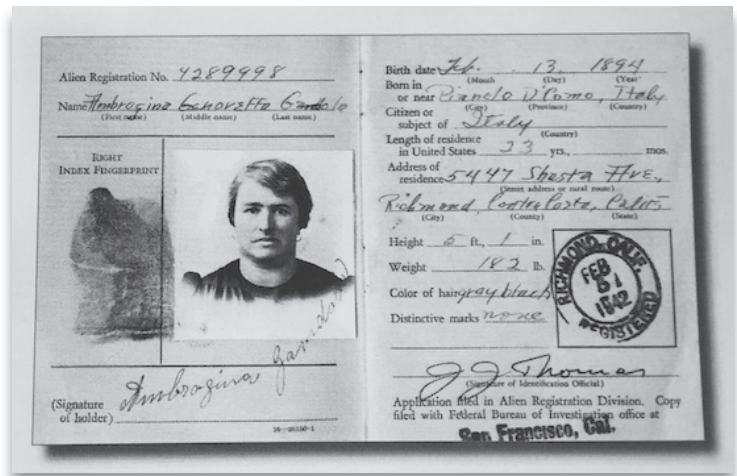 Alien Registration No. 4289998
Name Ambragina Genoveffa Gandola
(First name) (Middle name) (Last name)
RIGHT
INDEX FINGERPRINT
Ambragina Gandola
(Signature
of holder)
16—26150-1
Birth date Feb. 13. 1894
(Month (Day) (Year
Born in
or near Pianelo D'Como, Italy
(City) (Province) (Country)
Citizen or
subject of Italy
(Country)
Length of residence
in United States 23 yrs., mos.
Address of
residence 5447 Shasta Ave,
(Street address or rural route)
Richmond, Contra Costa, Calif,
(City) (County) (State)
Height 5 ft., 1 in.
Weight 182 lb.
Color of hair gray black
Distinctive marks none
RICHMOND, CALIF.
FEB
1942
REGISTERED
J J Thomas
(Signature of Identification Official)
Application filed in Alien Registration Division. Copy
filed with Federal Bureau of Investigation office at
San Francisco, Cal.